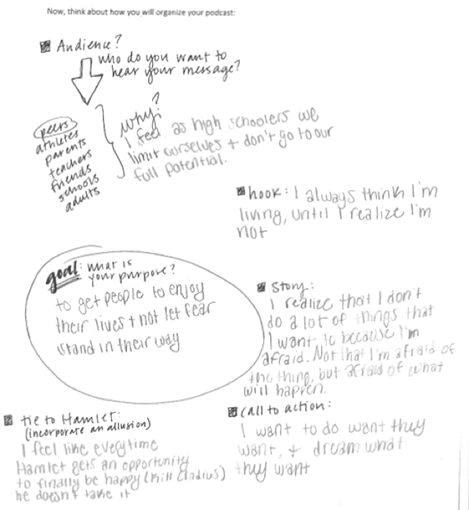 Now, think about how you will organize your podcast:
Audience?
who do you want to
hear your message?
peers
athletes
parents
teachers
friends
schools
adults
why?
I feel as high schoolers we
limit ourselves + don't go to our
full potential.
hook: I always think I'm
living, until I realize I'm
not
goal: what is
your purpose?
to get people to enjoy
their lives + not let fear
stand in their way
Story:
I realize that I don't
do a lot of things that
I want to because I'm
afraid. Not that I'm afraid of
the thing, but afraid of what
will happen.
tie to Hamlet:
(incorporate an allusion)
I feel like everytime
Hamlet gets an opportunity
to finally be happy (kill Cladius)
he doesn't take it
call to action:
I want to do want they
want, + dream what
they want